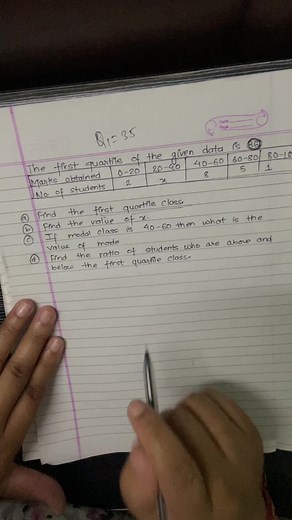 Q₁=35
The first quartile of the given data is 35
Marks obtained 0-20 20-40 40-60 60-80 80-10
No of students 2 x 8 5 1
a) Find the first quartile class.
b) Find the value of x.
c) If modal class is 40-60 then what is the
value of mode
d) Find the ratio of students who are above and
below the first quartile class.